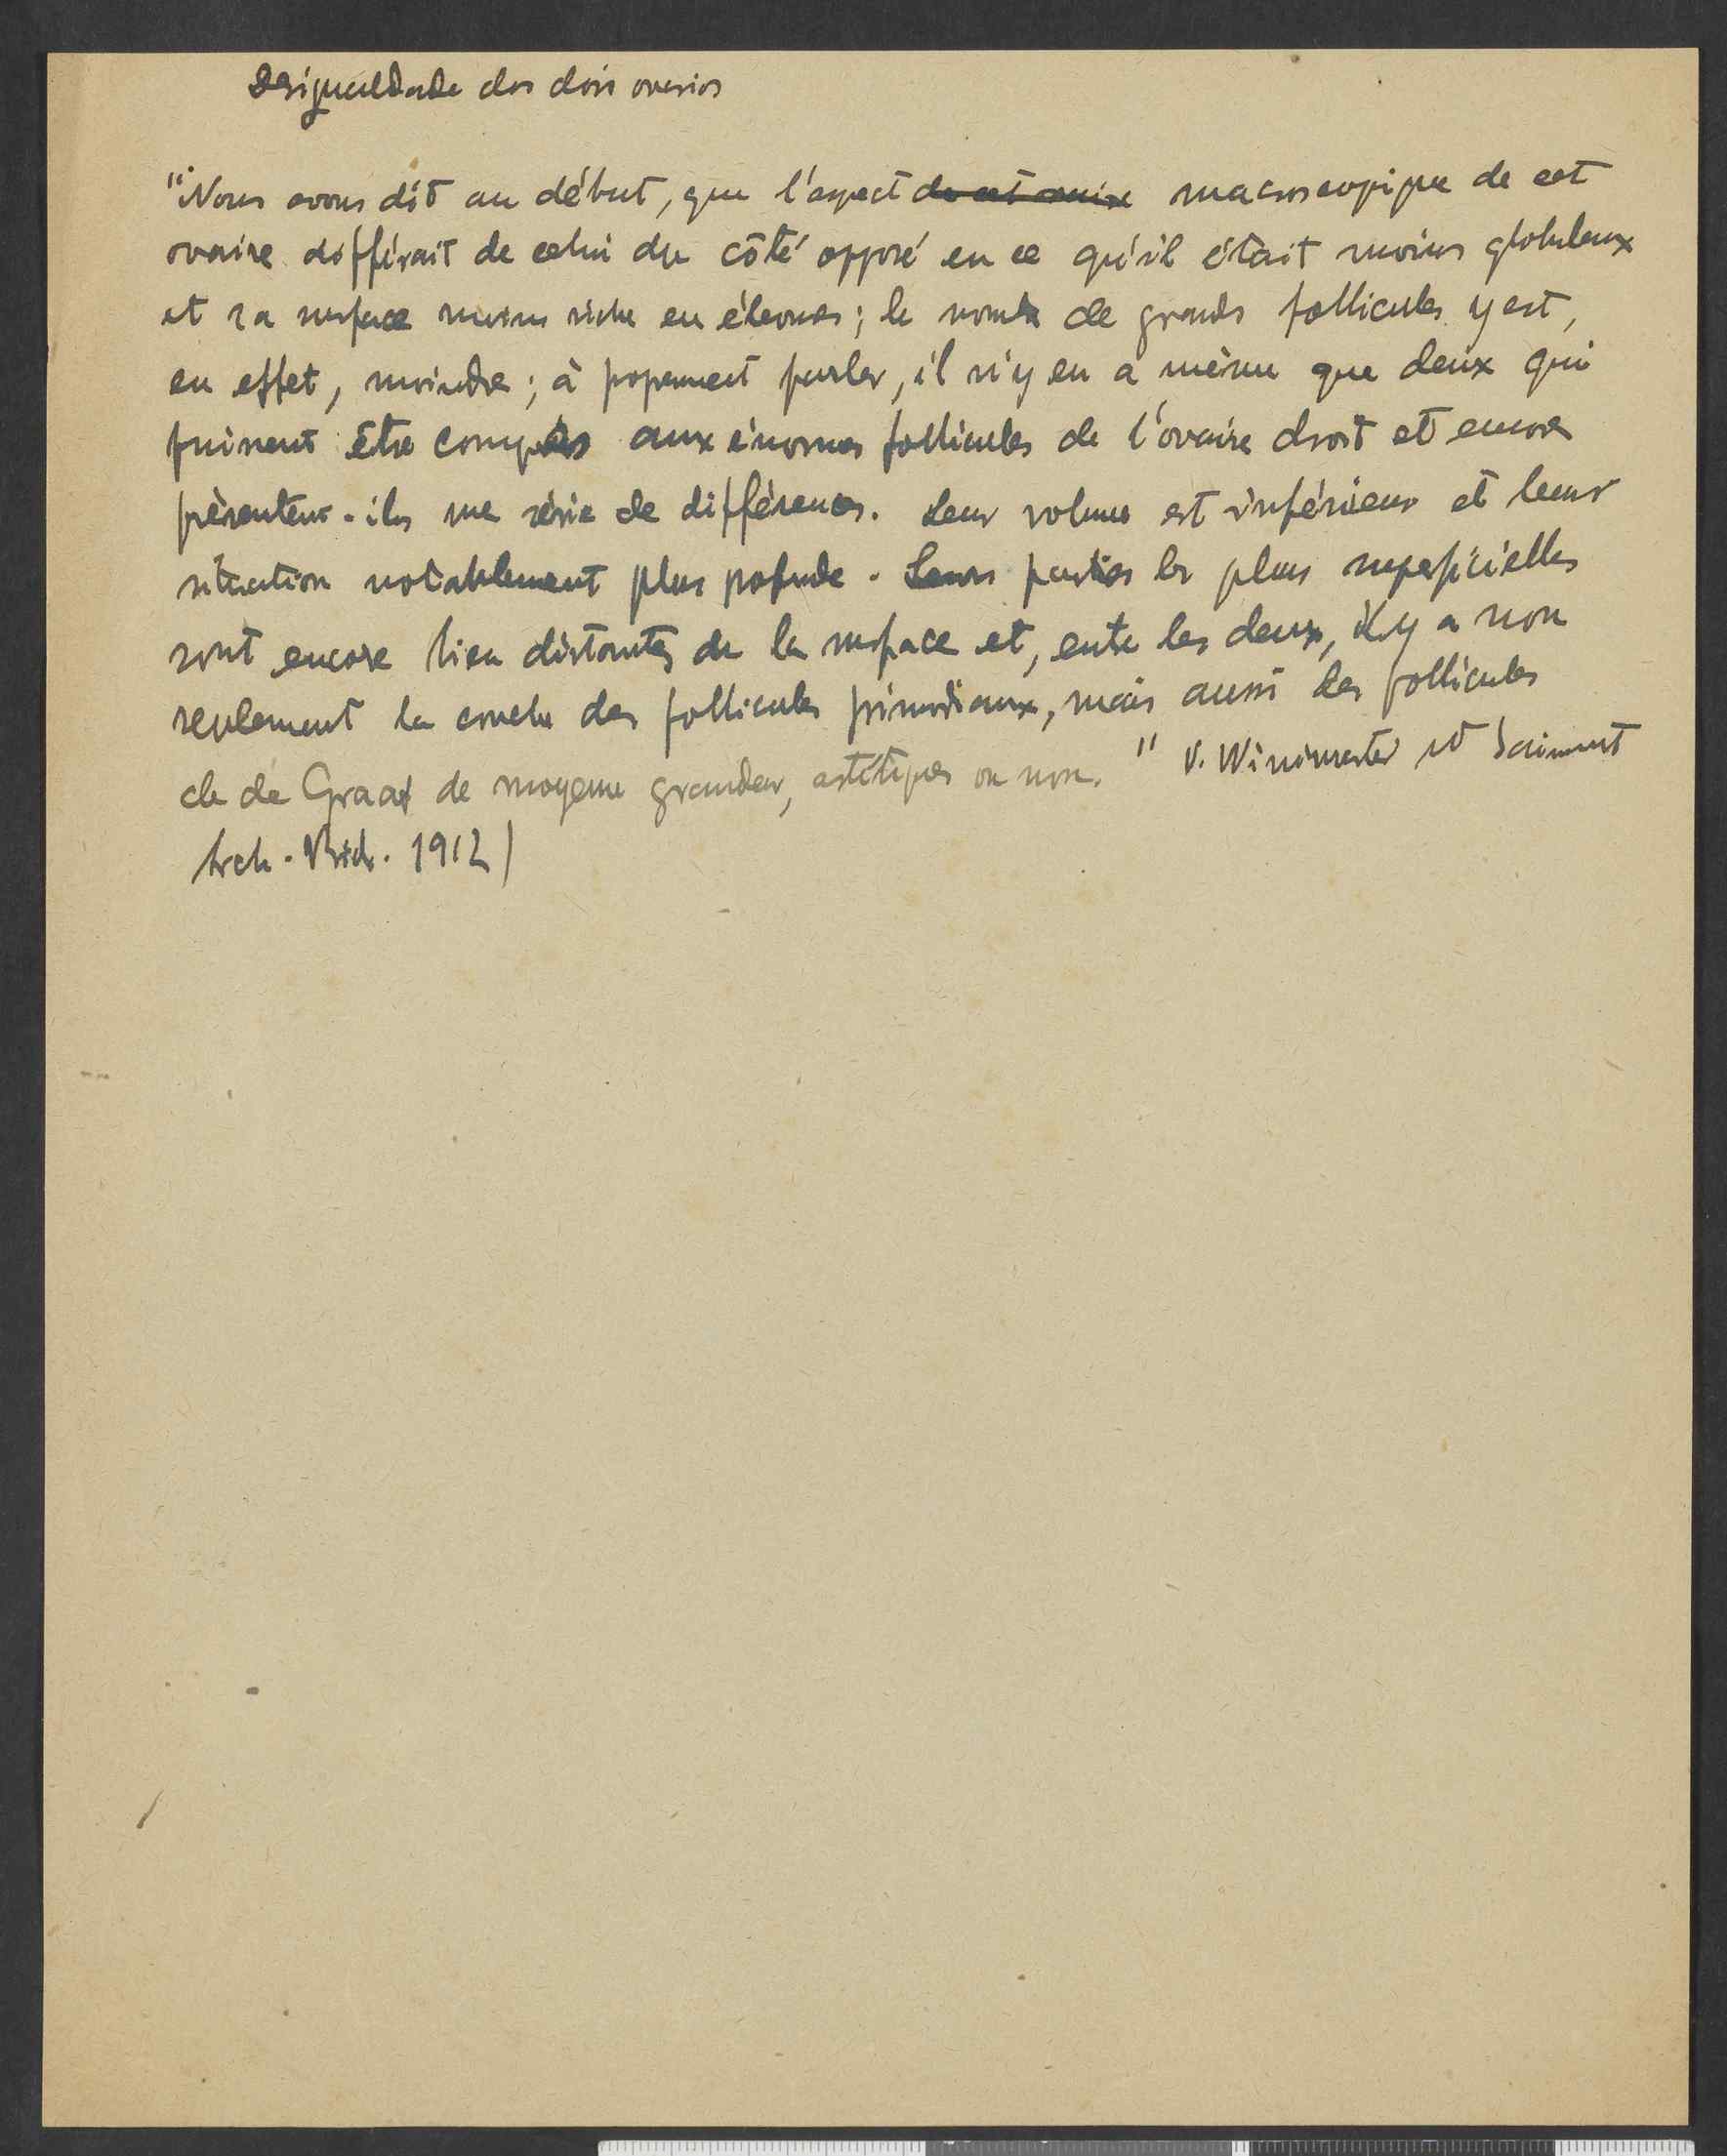 Desigualdade dos dois ovarios
"Nous avons dit au début, que l'aspect de cet ovaire macroscopique de cet
ovaire différait de celui du côté opposé en ce qu'il était moins globuleux
et sa surface moins riche en; le nombre de grands follicules y est,
en effet, moindre; à proprement parler, il n'y en a même que deux qui
puissent être comparés aux énormes follicules de l'ovaire droit et encore
présentent-ils une série de différences. Leur volume est inférieur et leur
situation notablement plus profonde. Leurs parties les plus superficielles
sont encore bien distantes de la surface et, entre les deux, il y a non
seulement la couche des follicules primordiaux, mais aussi des follicules
de de Graaf de moyenne grandeur, atrétiques ou non." V. Winiwarter et Sainmont
Arch. Biol. 1912)